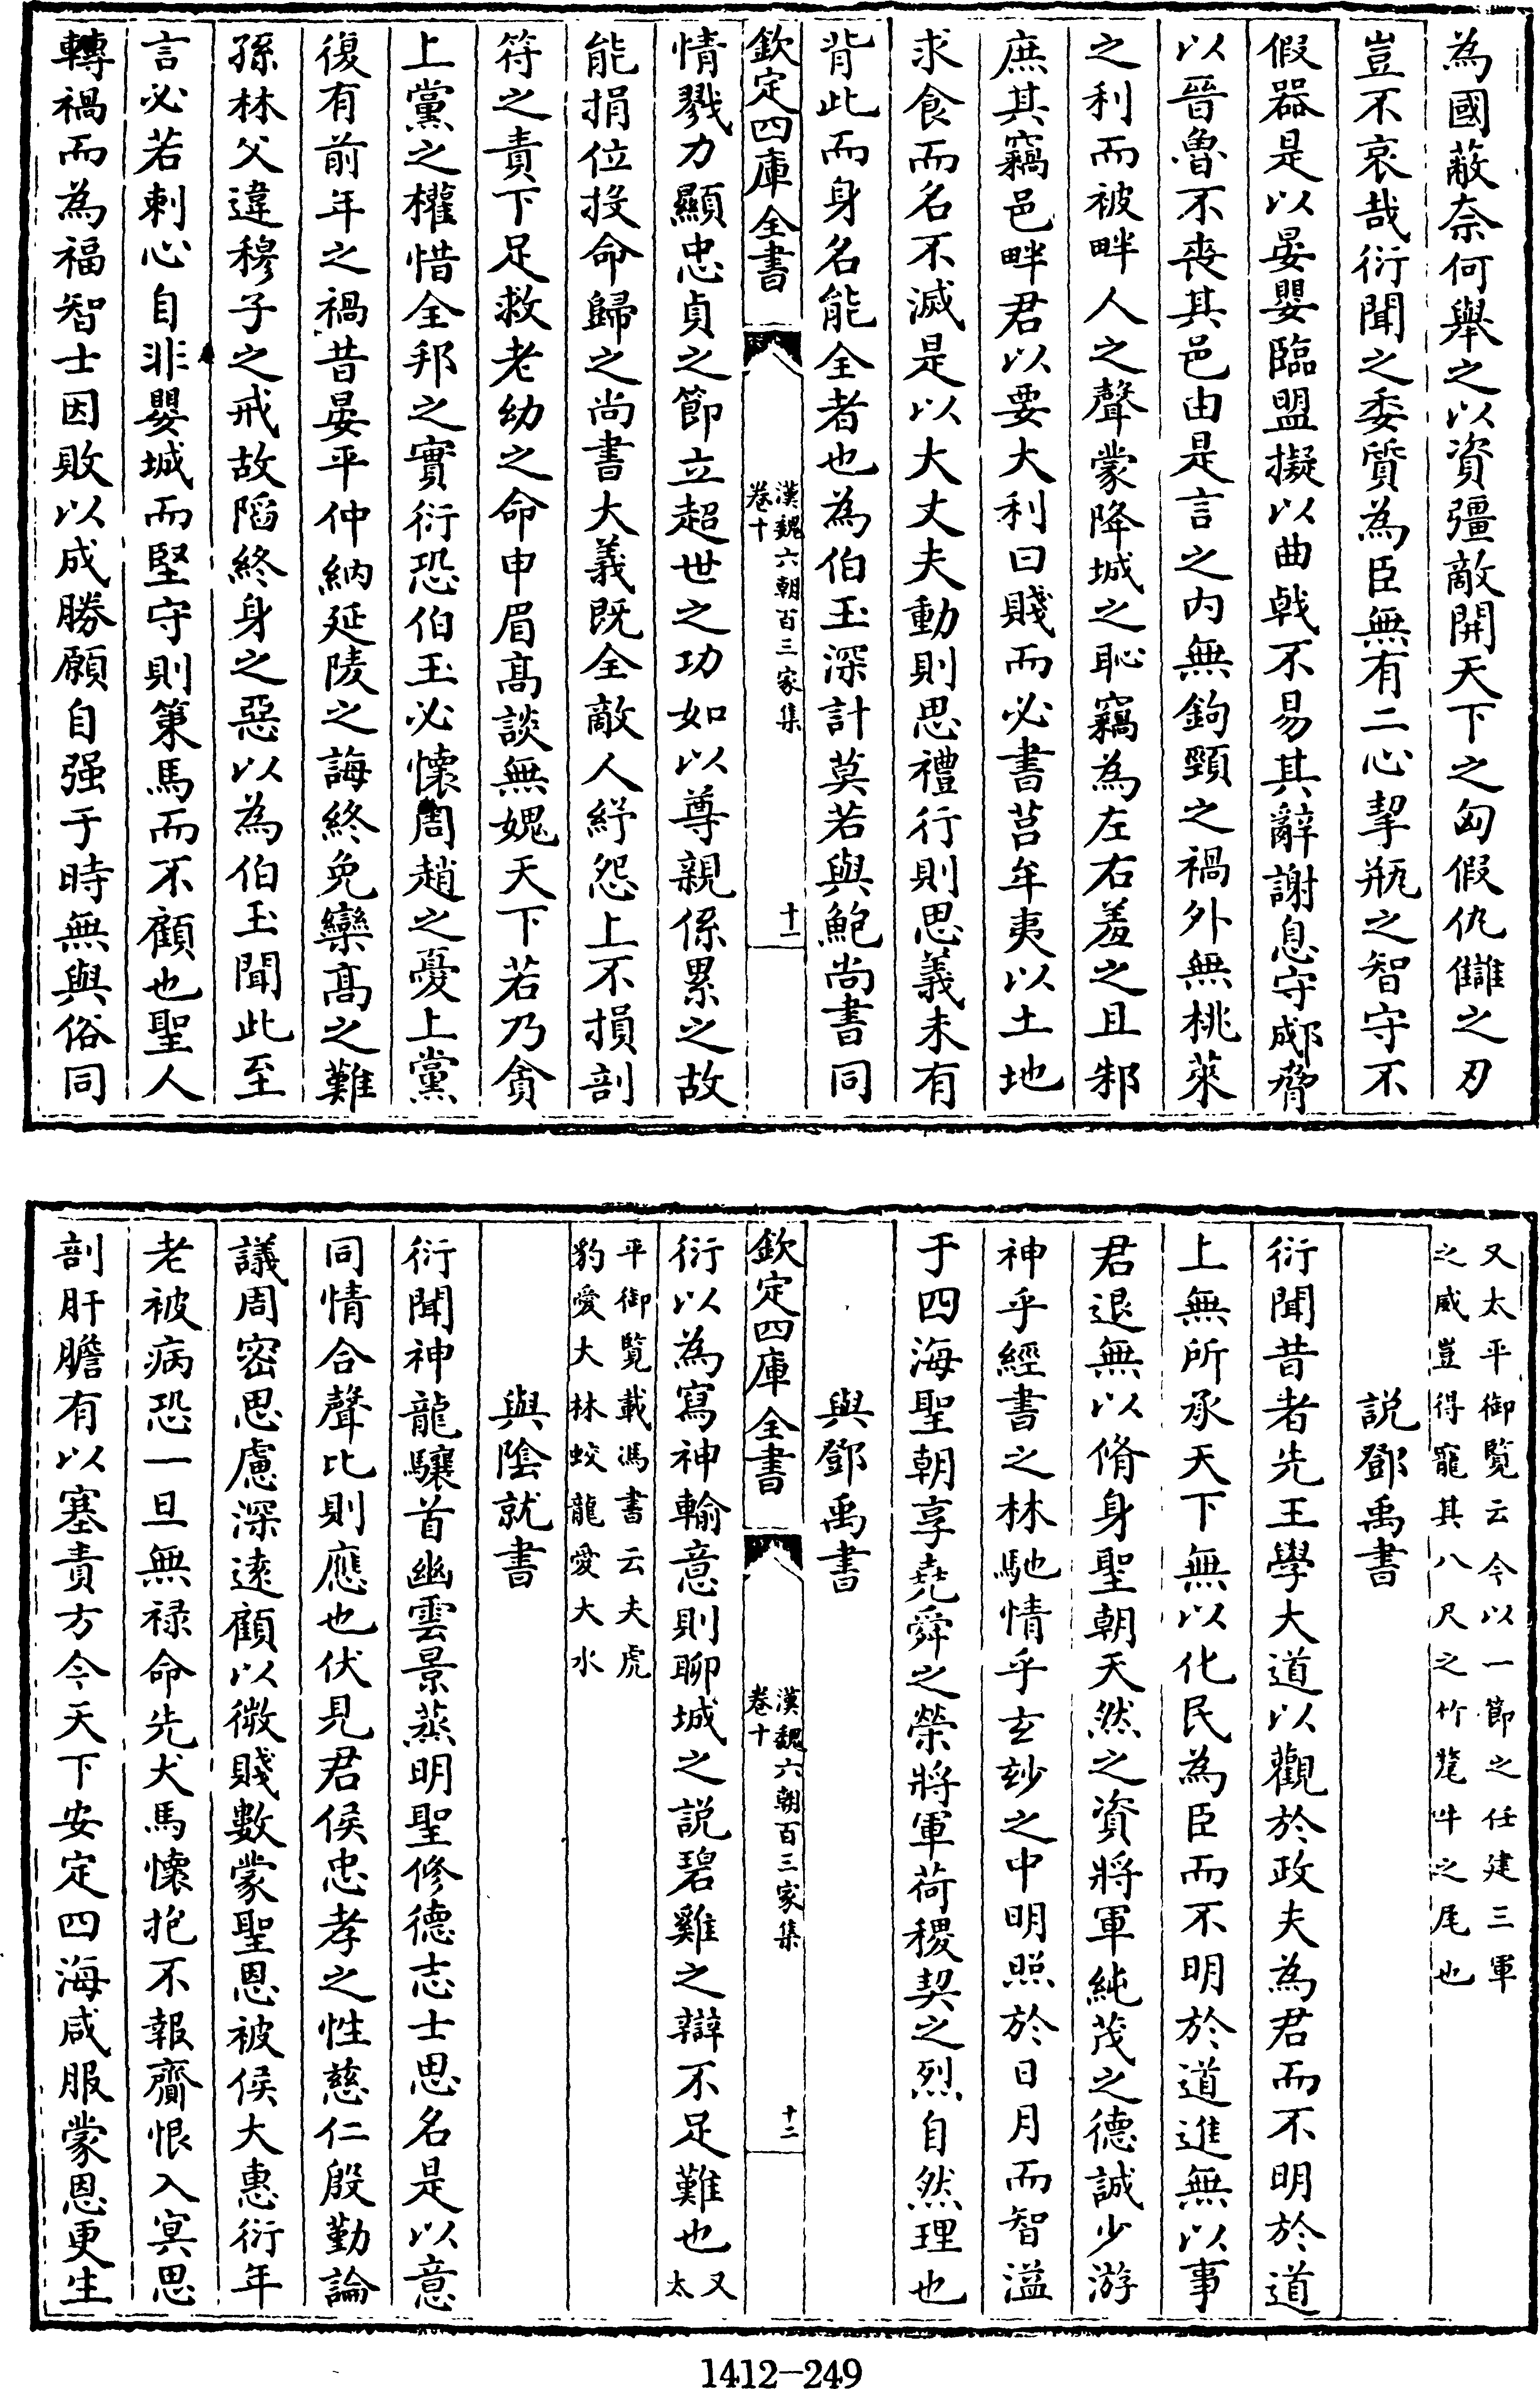 為國蔽奈何舉之以資彊敵開天下之匈假仇讎之刃
豈不哀哉衍聞之委質為臣無有二心挈瓶之智守不
假器是以晏嬰臨盟擬以曲戟不易其辭謝息守郕脅
以晉魯不喪其邑由是言之内無鉤頸之禍外無桃萊
之利而被畔人之聲蒙降城之恥竊為左右羞之且邾
庶其竊邑畔君以要大利曰賤而必書莒牟夷以土地
求食而名不滅是以大丈夫動則思禮行則思義未有
背此而身名能全者也為伯玉深計莫若與鮑尚書同
欽定四庫全書
漢魏六朝百三家集
卷十
十一
情戮力顯忠貞之節立超世之功如以尊親係累之故
能捐位投命歸之尚書大義既全敵人紓怨上不損剖
符之責下足救老幼之命申眉髙談無媿天下若乃貪
上黨之權惜全邦之實衍恐伯玉必懷周趙之憂上黨
復有前年之禍昔晏平仲納延陵之誨終免欒髙之難
孫林父違穆子之戒故陷終身之惡以為伯玉聞此至
言必若刺心自非嬰城而堅守則策馬而不顧也聖人
轉禍而為福智士因敗以成勝願自强于時無與俗同
又太平御覽云今以一節之任建三軍
之威豈得寵其八尺之竹氂牛之尾也
説鄧禹書
衍聞昔者先王學大道以觀於政夫為君而不明於道
上無所承天下無以化民為臣而不明於道進無以事
君退無以脩身聖朝天然之資將軍純茂之德誠少游
神乎經書之林馳情乎玄妙之中明照於日月而智溢
于四海聖朝享堯舜之榮將軍荷稷契之烈自然理也
與鄧禹書
欽定四庫全書
漢魏六朝百三家集
卷十
十二
衍以為寫神輸意則聊城之説碧雞之辯不足難也又太
平御覽載馮書云夫虎
豹愛大林蛟龍愛大水
與陰就書
衍聞神龍驤首幽雲景蒸明聖修德志士思名是以意
同情合聲比則應也伏見君侯忠孝之性慈仁殷勤論
議周密思慮深逺顧以微賤數蒙聖恩被侯大惠衍年
老被病恐一旦無禄命先犬馬懷抱不報齎恨入冥思
剖肝膽有以塞責方今天下安定四海咸服蒙恩更生
1412-249